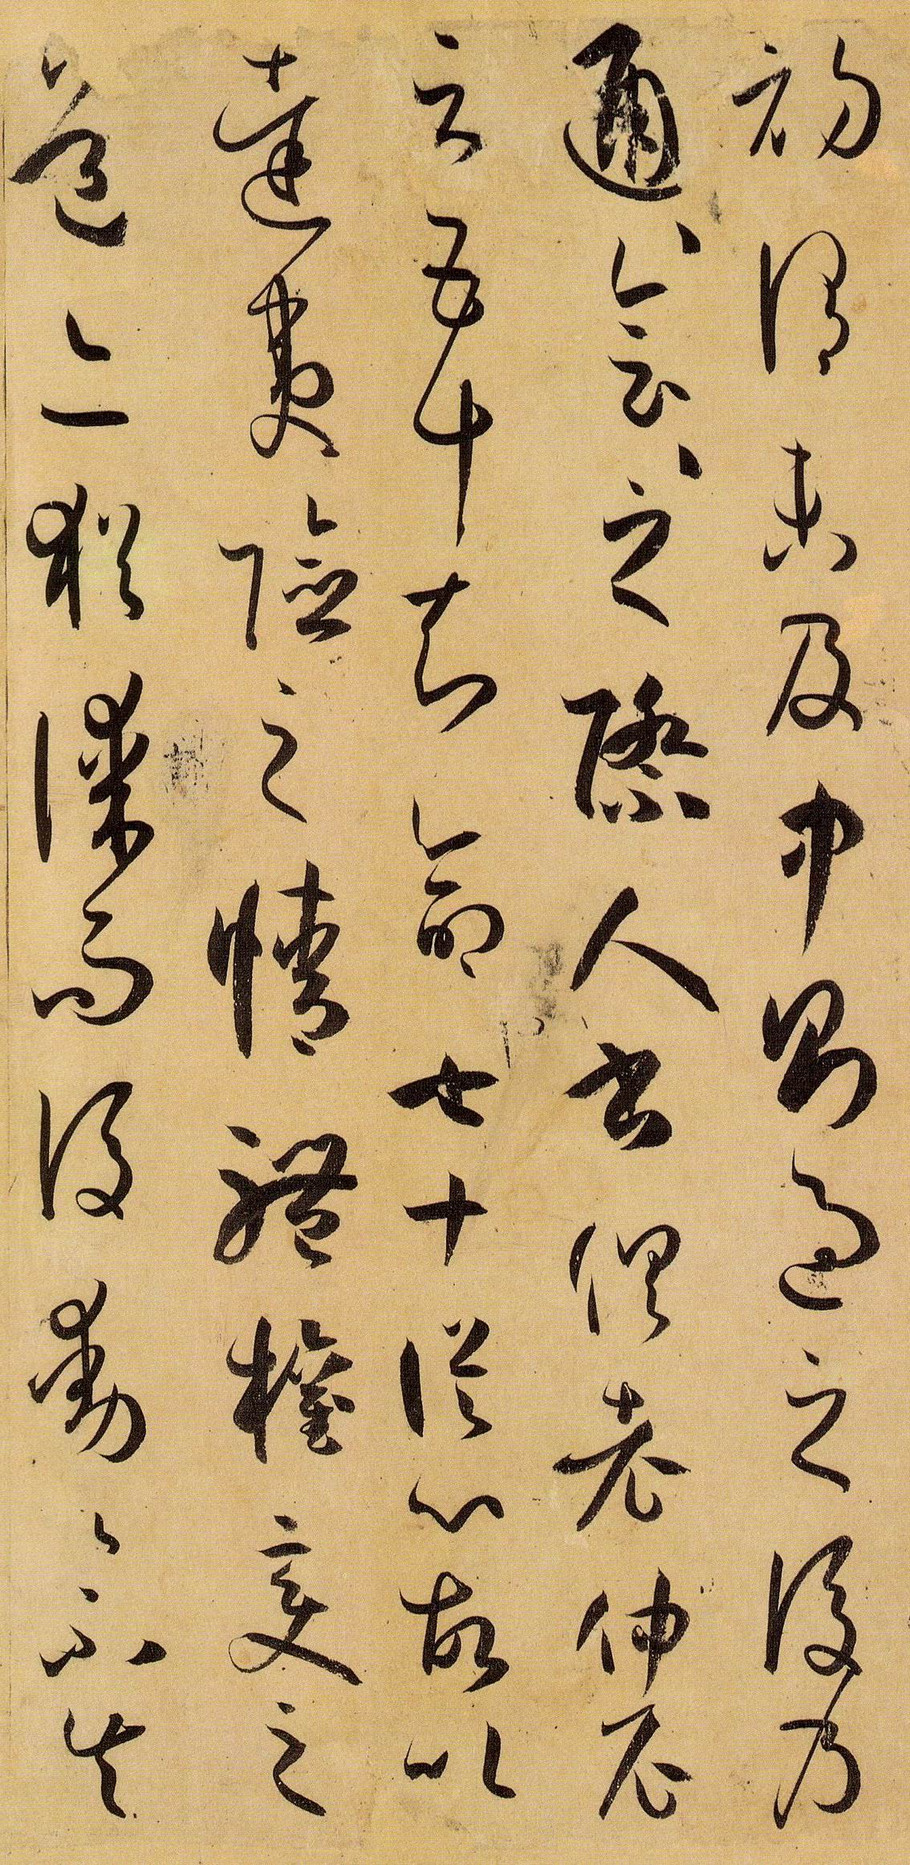 初謂未及中則過之後乃
通〻會〻之際人書俱老仲尼
云五十知命七十從心故以
達夷險之情體權變之
道亦猶謀而後動〻不失